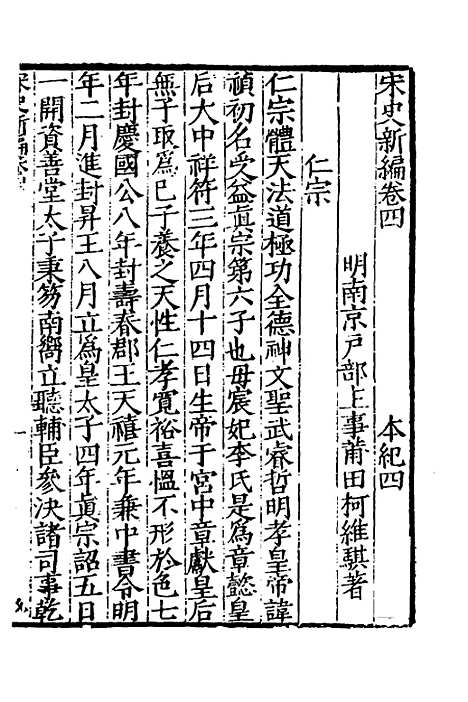 宋史新編卷四 本紀四
明南京戶部主事莆田柯維騏著
仁宗
仁宗體天法道極功全德神文聖武睿哲明孝皇帝諱
禎初名受益真宗第六子也母宸妃李氏是為章懿皇
后大中祥符三年四月十四日生帝于宮中章獻皇后
無子取為己子養之天性仁孝寬裕喜慍不形於色七
年封慶國公八年封壽春郡王天禧元年兼中書令明
年二月進封昇王八月立為皇太子四年真宗詔五日
一開資善堂太子秉笏南嚮立聽輔臣參決諸司事乾
宋史新編卷四 一